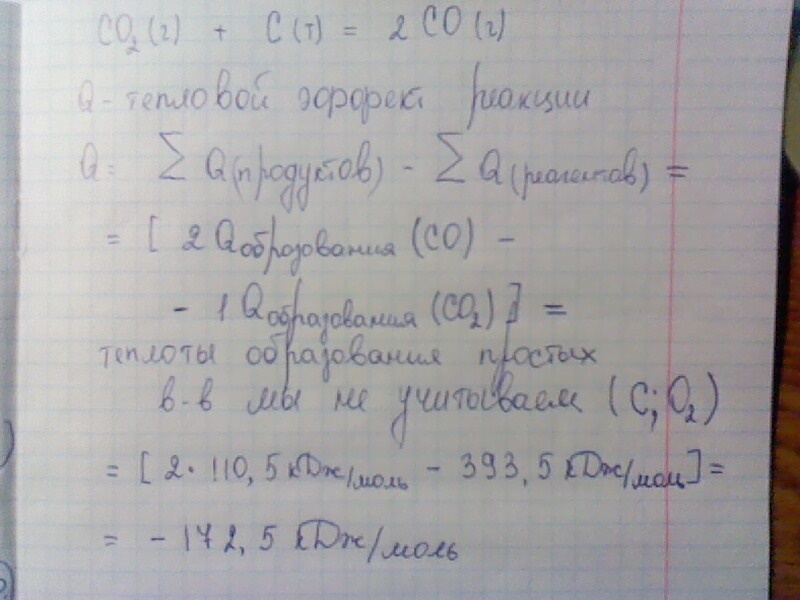 CO₂(г) + C(т) = 2CO(г)
Q - тепловой эффект реакции
Q = ∑ Q(продуктов) - ∑ Q(реагентов) =
= [ 2 Qобразования (CO) -
- 1 Qобразования (CO₂) ] =
теплоты образования простых
в-в мы не учитываем (C; O₂)
= [ 2 · 110,5 кДж/моль - 393,5 кДж/моль ] =
= - 172,5 кДж/моль